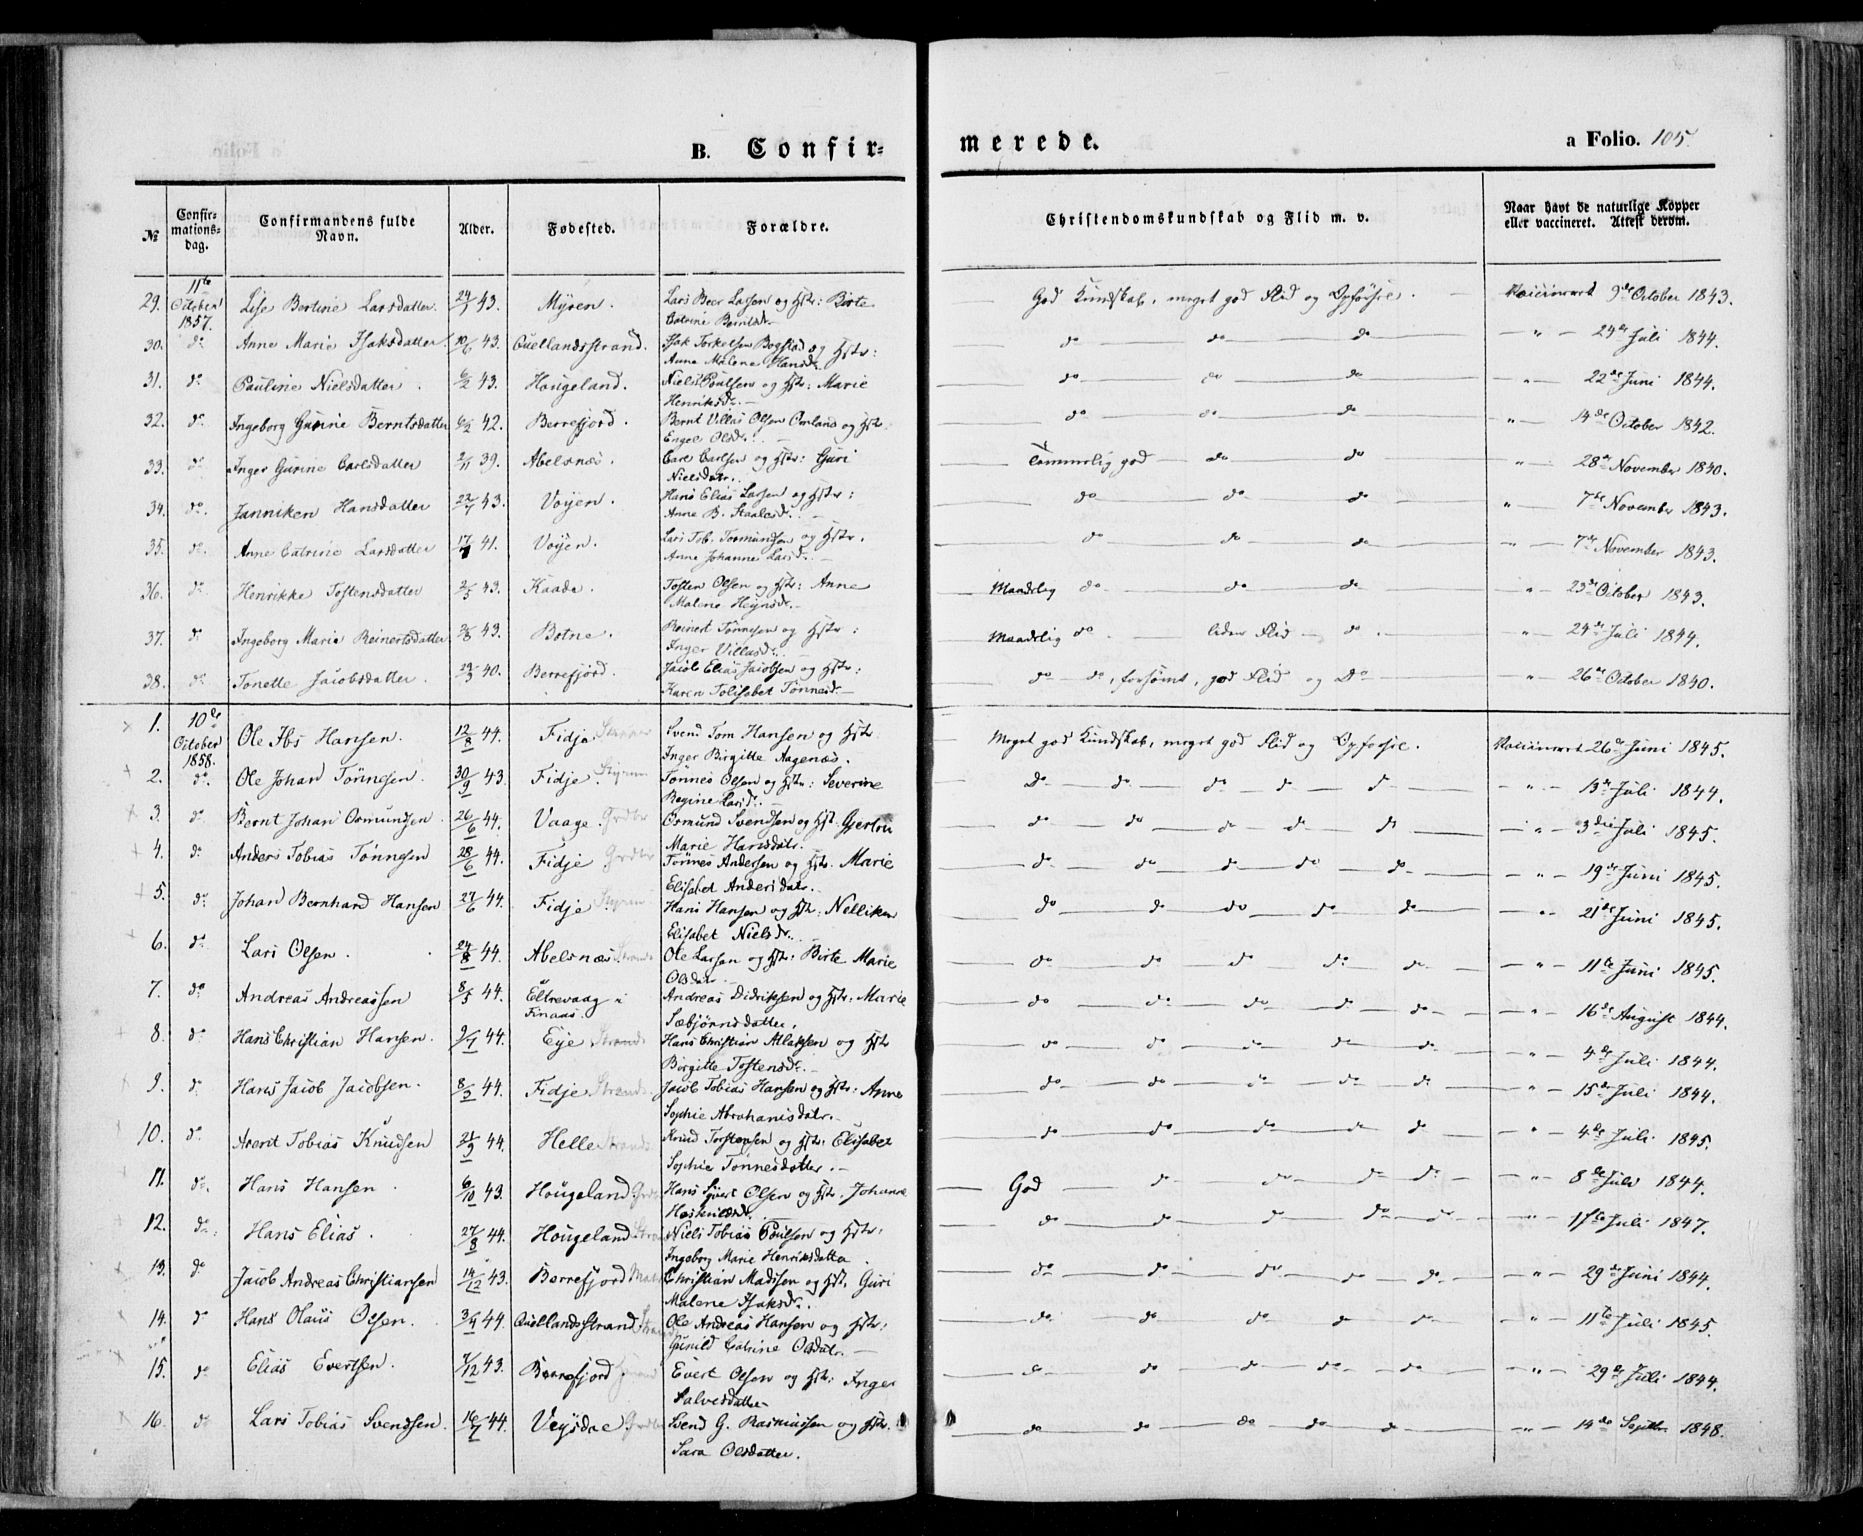 B. Confirmerede. a Folio. 105
№ Confirmationsdag. Confirmandens fulde Navn. Alder. Fødested. Forældre. Christendomskundskab og Flid m. v. Naar havt de naturlige Kopper eller vaccineret. Attest derom.
29. 11te October 1857. Lise Bertine Larsdatter. 43. Myren. Lars Larsen og Hstr: Birte Catrine Berntsdr. God Kundskab, meget god Flid og Opførsel. Vaccineret 9de October 1843.
30. do Anne Marie Isaksdatter 10/6 43. Qvellandsstrand. Isak Torkelsen Bogstad og Hstr: Anne Malene Hansdr. do do do " 24de Juli 1844.
31. do Pauline Nielsdatter. 6/2 43. Hougeland. Niels Poulsen og Hstr: Marie Henriksdr. do do do " 22de Juni 1844.
32. do Ingeborg Gurine Berntsdatter 42. Berrefjord. Bernt Villas Olsen og Hstr. Engel Olsdr. do do do " 14de October 1842.
33. do Inger Gurine Carlsdatter 2/11 39. Abelsnæs. Carl Carlsen og Hstr: Guri Nielsdatr. Temmelig god do do " 28de November 1840.
34. do. Janniken Hansdatter 43. Vøyen. Hans Elias Larsen og Hstr: Anne B. Staalesdr. do do do " 7de November 1843.
35. do. Anne Catrine Larsdatter 41. Vøyen. Lars Tob. Tormundsen og Hstr. Anne Johanne Larsdr. do do do " 7de November 1843.
36. do. Henrikke Tostensdatter 2/5 43. Kaade. Tosten Olsen og Hstr: Anne Malene Heynsdr. Maadelig do do do " 23de October 1843.
37. do Ingeborg Marie Reinertsdatter 43. Botne. Reinert Tønnesen og Hstr: Inger Villasdr. Maadelig do liden Flid do. " 24de Juli 1844.
38. do Tonette Jacobsdatter. 40. Berrefjord. Jacob Elias Jacobsen og Hstr: Karen Tolisabet Tønnesdr. do do, forsømt, god Flid og Do " 26de October 1840.
1. 10de October 1858. Ole Ibs Hansen. 12/8 44. Fidje. Svend Tom Hansen og Hstr Inger Birgitte Aagenæs. Meget god Kundskab, meget god Flid og Opførsel. Vaccineret 26de Juni 1845.
2. do. Ole Johan Tønnesen. 30/9 43. Fidje. Styrm Tønnes Olsen og Hstr: Severine Regine Larsdr. Do do do do do " 13de Juli 1844.
3. do Bernt Johan Osmundsen. 26/6 44. Vaage. Grdbr Osmund Svendsen og Hst. Gjertru Marie Hansdatr. do do do do do " 3die Juli 1845.
4. do Anders Tobias Tønnesen 28/6 44. Fidje Grdbr Tønnes Andersen og Hstr. Marie Elisabet Andersdatr. do do do do do " 19de Juni 1845.
5. do Johan Bernhard Hansen 27/6 44. Fidje. Styrm Hans Hansen og Hstr: Nelliken Elisabet Nielsdr. do do do do do " 21de Juni 1845.
6. do Lars Olsen. 24/8 44. Abelsnæs. Strands Ole Larsen og Hstr: Birte Marie Olsdatr. do do do do do " 11te Juni 1845.
7. do Andreas Andreassen 8/5 44. Eltrevaag i Finaas. Andreas Didriksen og Hstr: Marie Sæbjørnsdatter. do do do do do " 16de August 1844.
8. do Hans Christian Hansen. 9/1 44. Eje Strands Hans Christian Atlaksen og Hstr Birgitte Tostensdr. do do do do do " 4de Juli 1844.
9. do Hans Jacob Jacobsen. 8/3 44. Fidje Strands Jacob Tobias Hansen og Hstr: Anne Sophie Abrahamsdatr. do do do do do " 15de Juli 1844.
10. do Averit Tobias Knudsen 21/9 44. Helle Strands Knud Torstensen og Hstr: Elisabet Sophie Tønnesdatter. do do do do do " 4de Juli 1845.
11. do. Hans Hansen 6/10 43. Hougeland Grdbr Hans Syvert Olsen og Hstr. Johanne God do do do do " 8de Juli 1844.
12. do. Hans Elias. 27/8 44. Hougeland Niels Tobias Poulsen og Hstr: Ingeborg Marie Henriksdatter. do do do do do " 17de Juli 1847.
13. do Jacob Andreas Christiansen 14/12 43. Berrefjord Christian Madssen og Hstr. Guri Malene Isaksdr. do do do do do " 29de Juni 1844.
14. do Hans Olaus Olsen. 3/9 44. Qvellandsstrand Strands Ole Andreas Hansen og Hstr: Gunild Catrine Olsdatr. do do do do do " 11te Juli 1845.
15. do Elias Evertsen. 7/12 43. Berrefjord Evert Olsen og Hstr: Inger Salvesdatter. do do do do do " 29de Juli 1844.
16. do Lars Tobias Svendsen. 16/7 44. Veysdal Grdbr Svend G. Rasmussen og Hstr. Sara Olsdatter. do do do do do " 14de Septbr 1848.